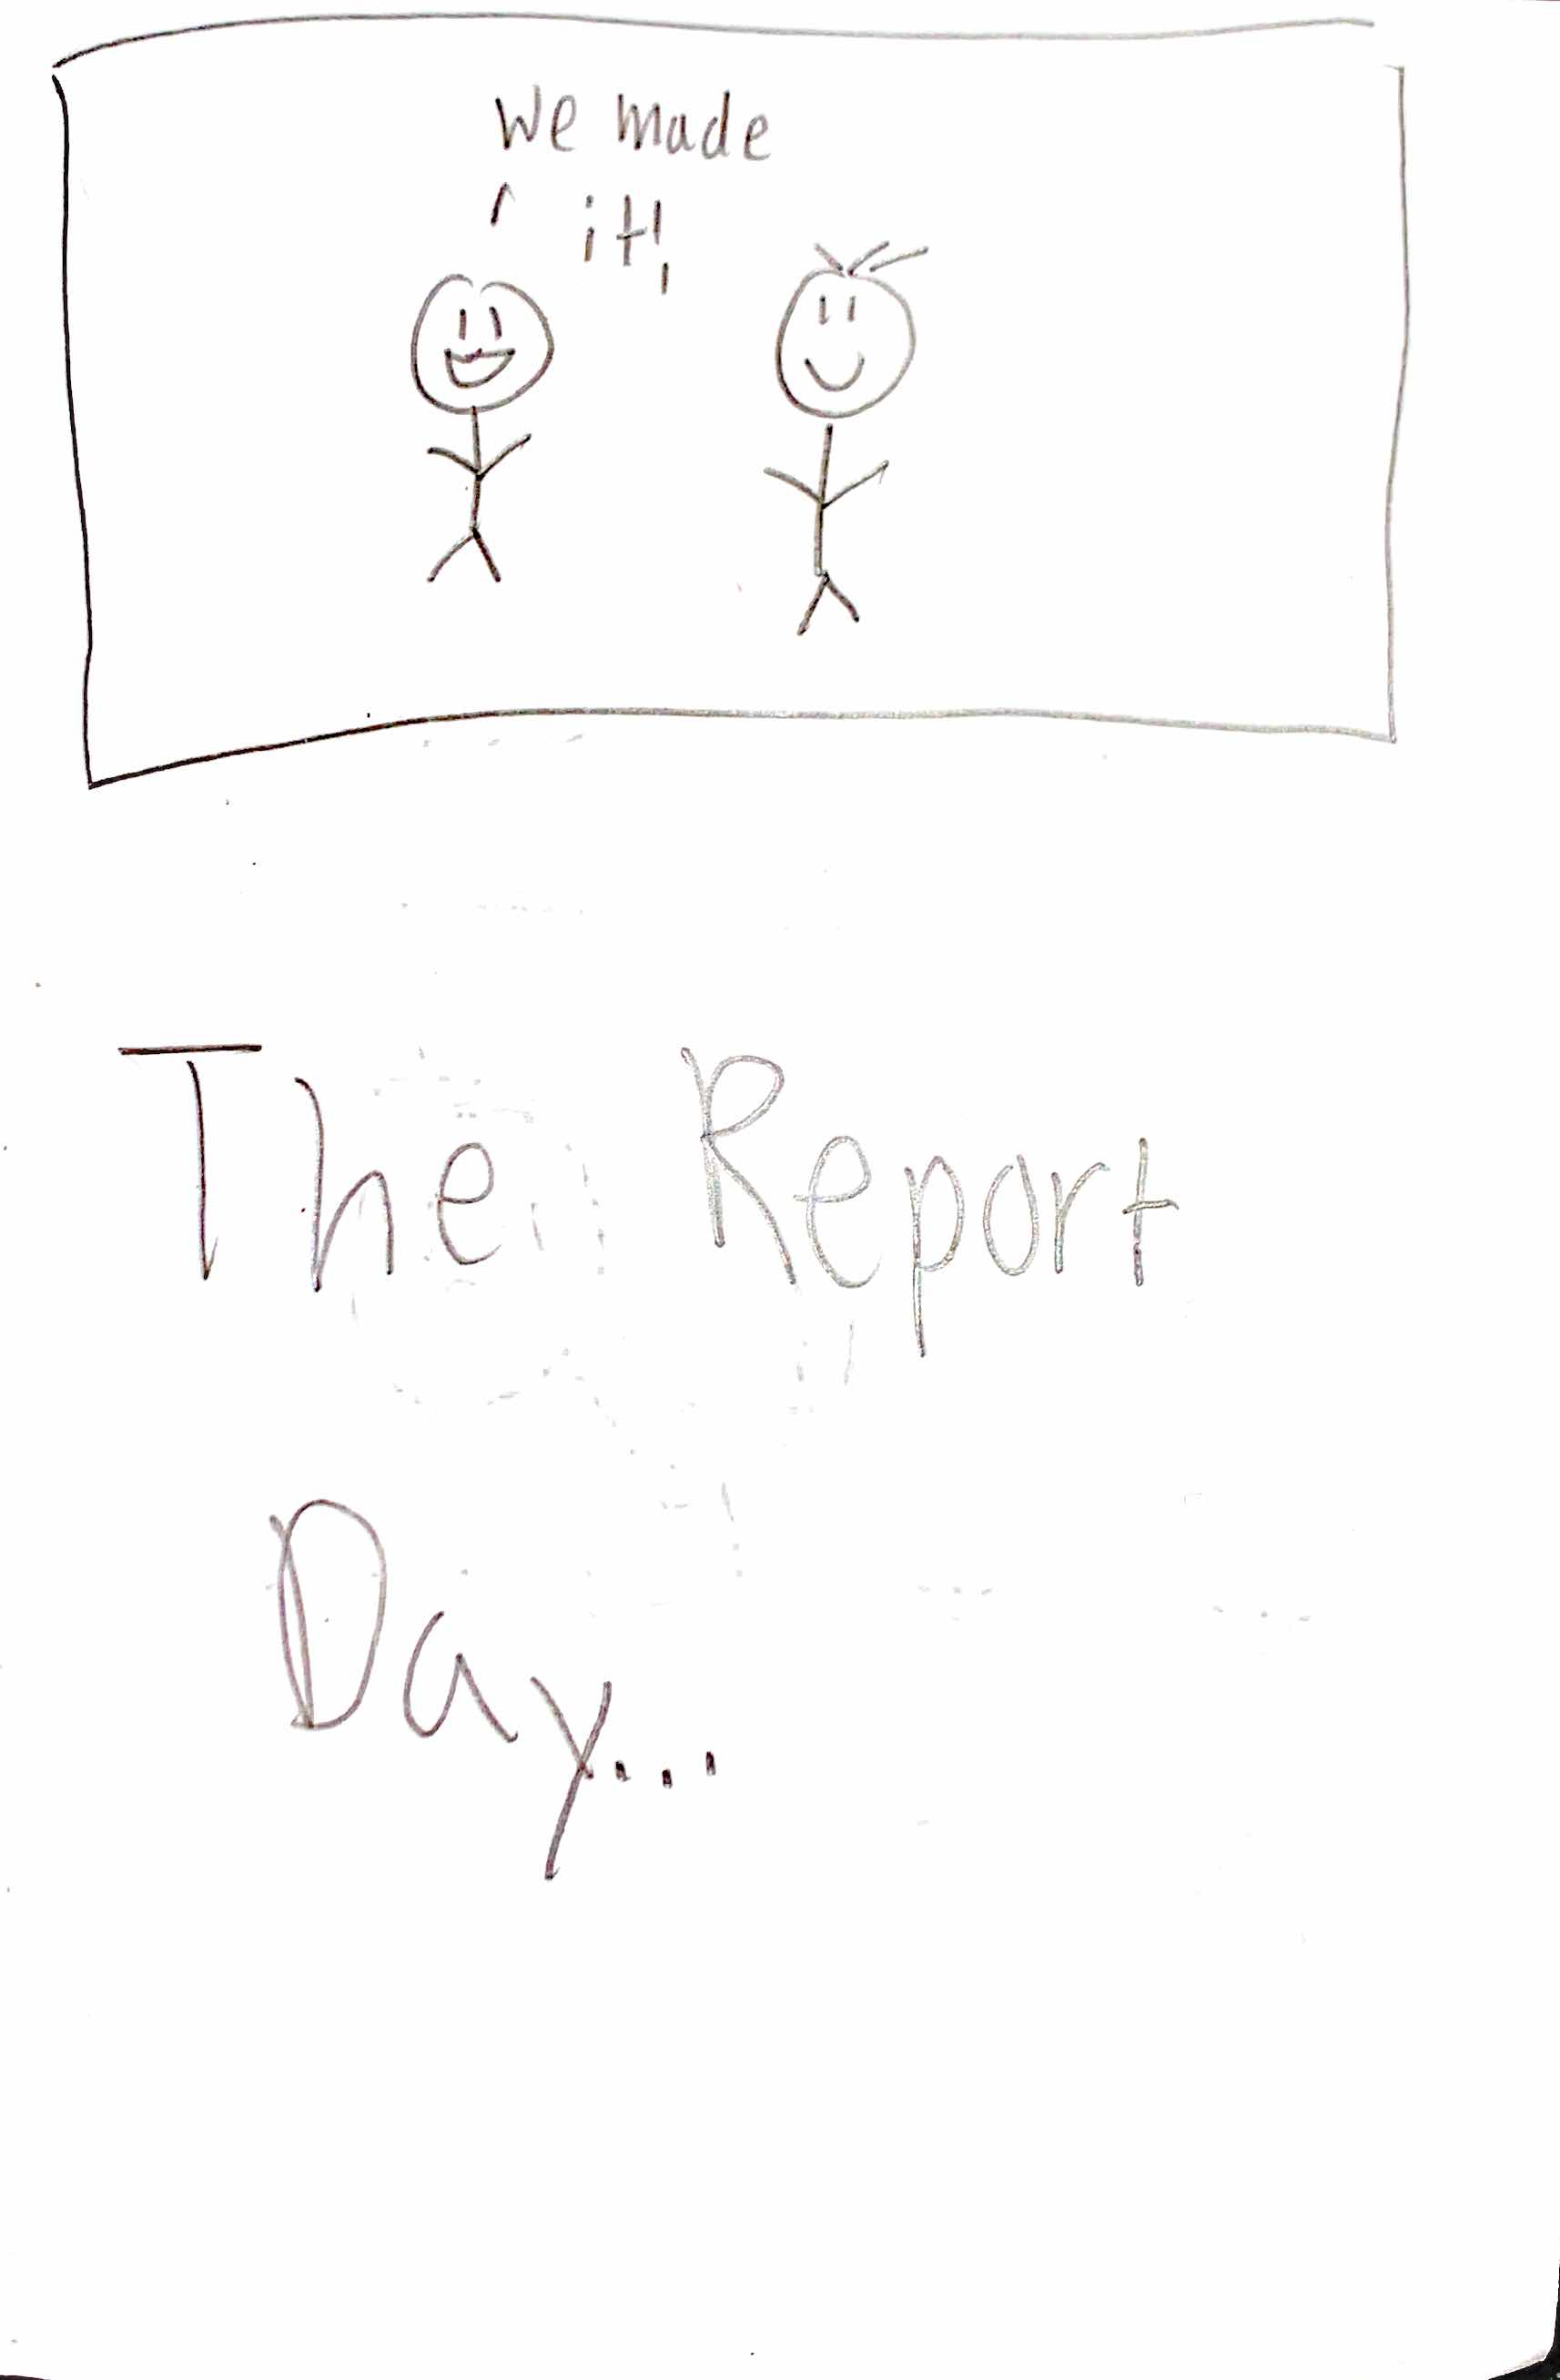 We made
it!
The Report
Day...